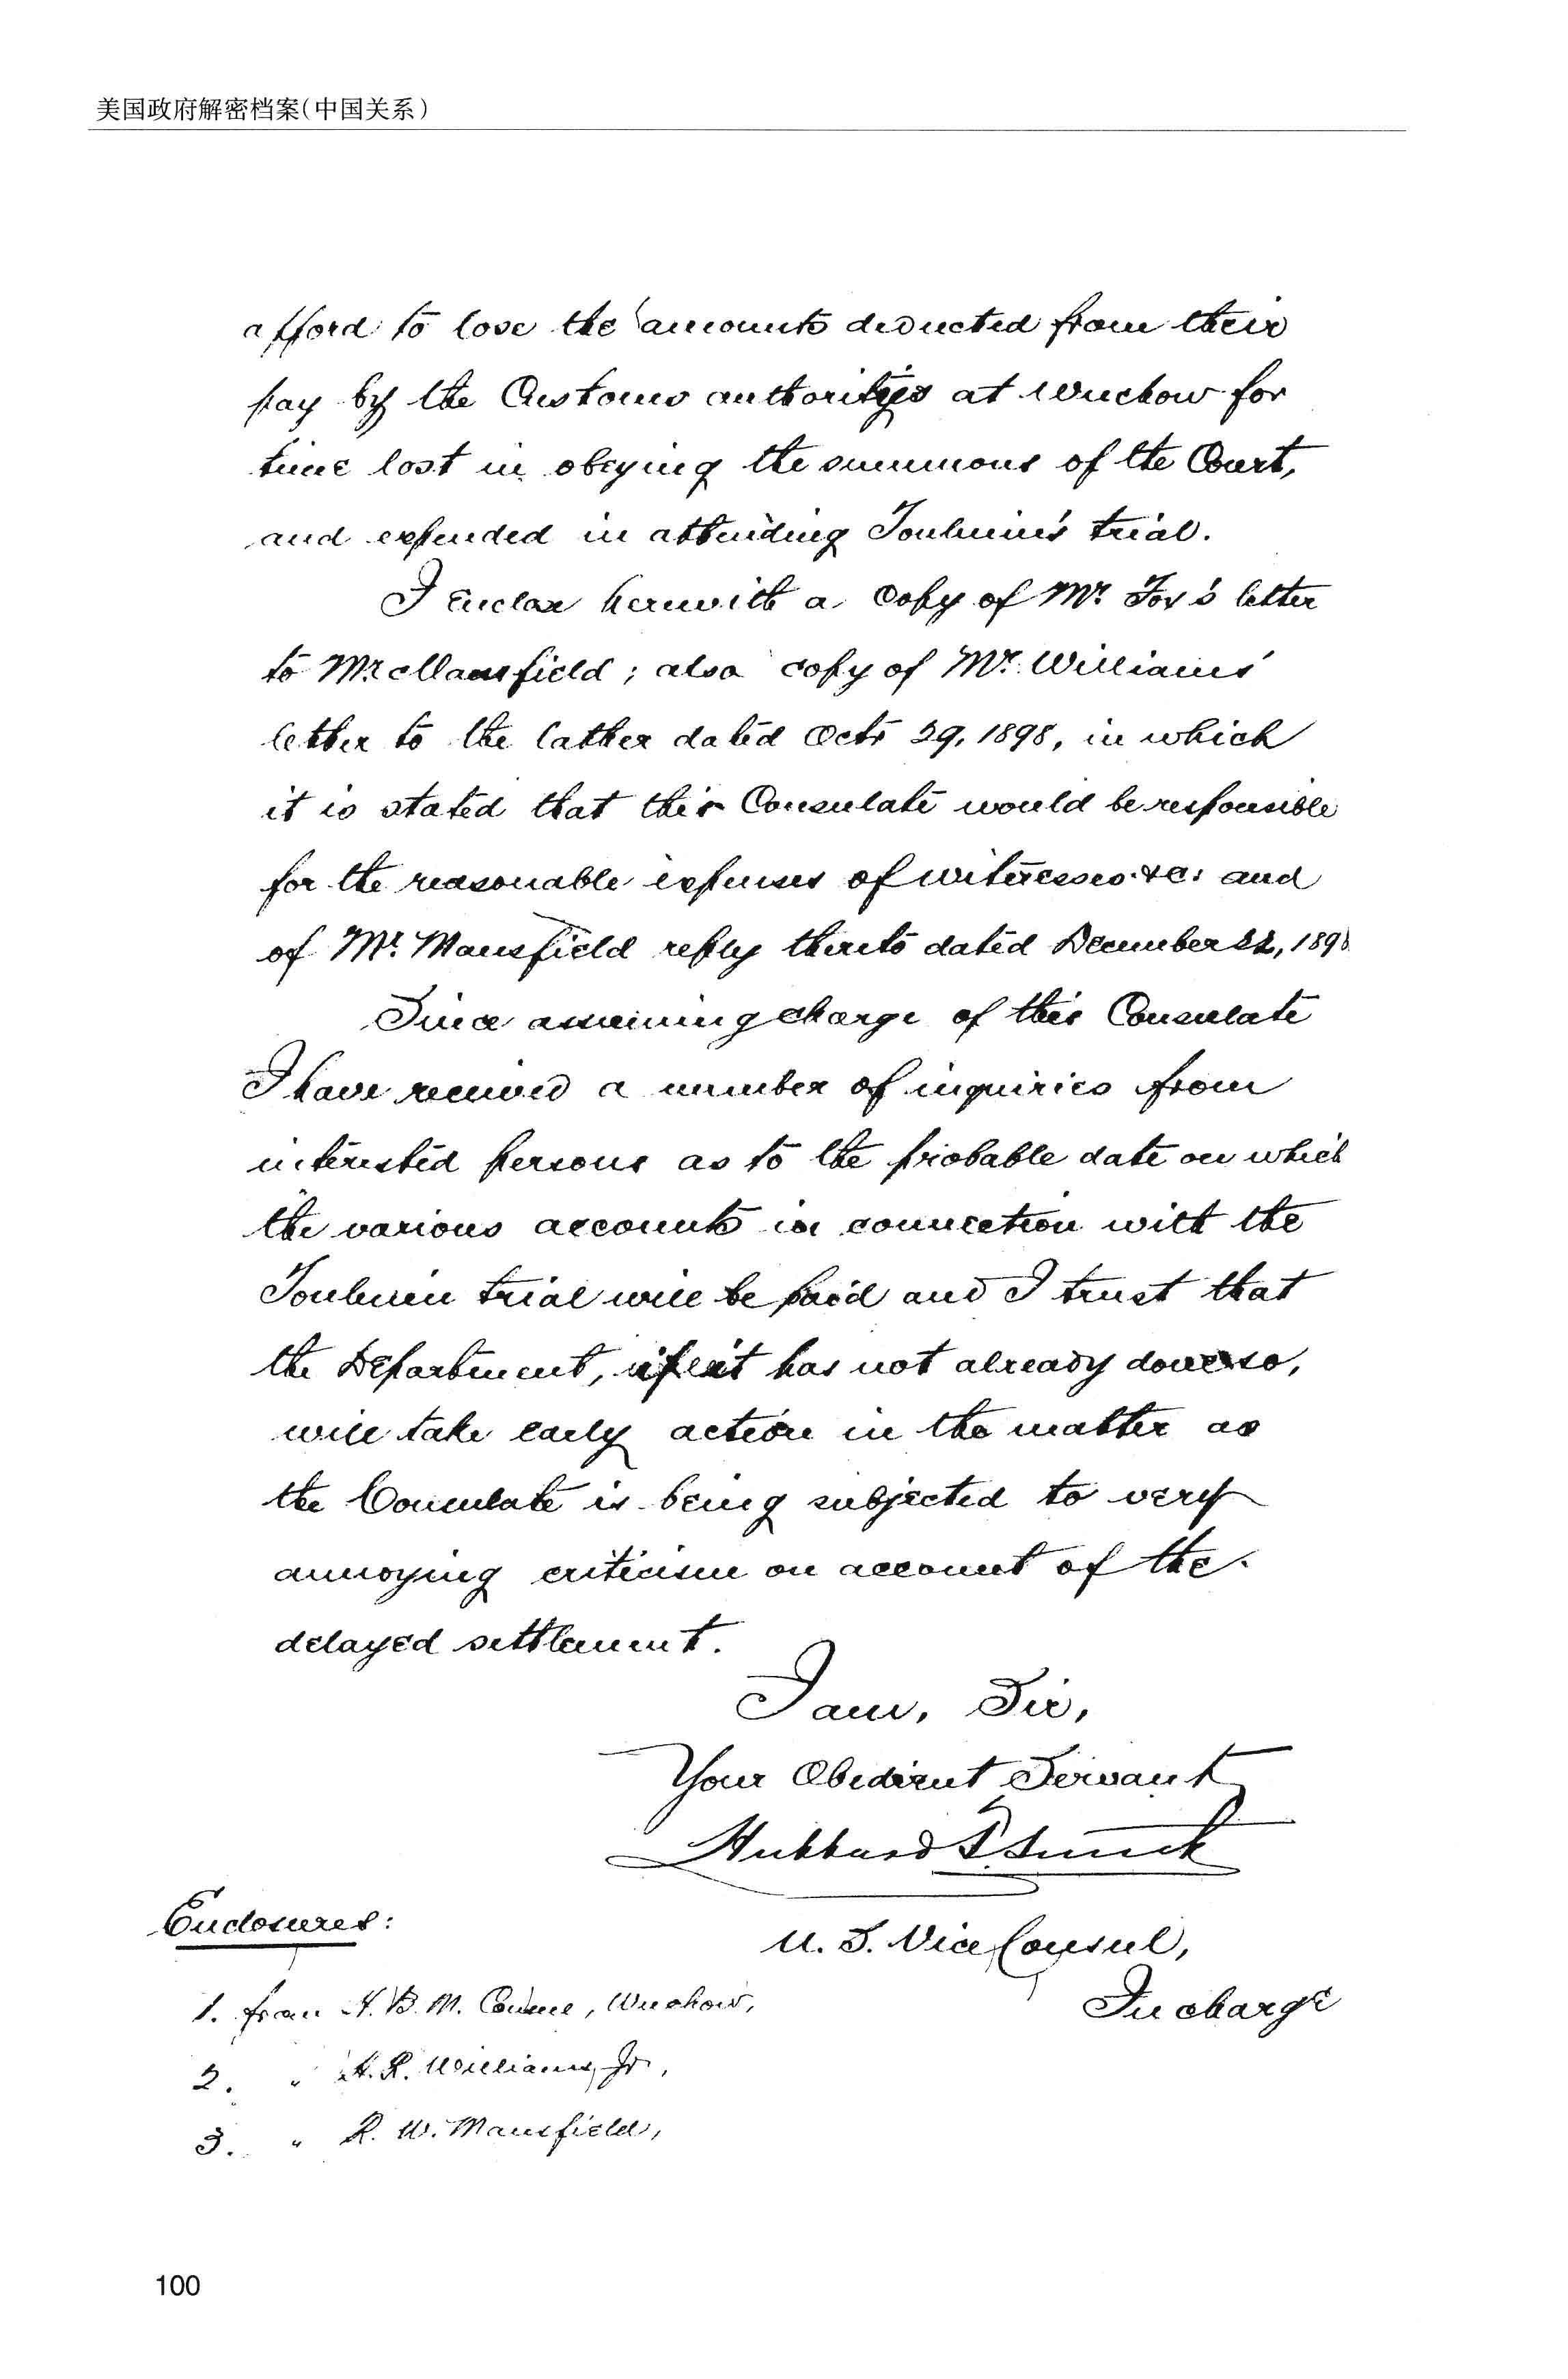 美国政府解密档案（中国关系）
afford to lose the amounts deducted from their
pay by the Customs authorities at Wuchow for
time lost in obeying the summons of the Court,
and expended in attending Toulmin's trial.
I enclose herewith a copy of Mr. Fox's letter
to Mr. Mansfield; also copy of Mr. Williams'
letter to the latter dated Octr 29, 1898, in which
it is stated that this Consulate would be responsible
for the reasonable expenses of witnesses &c: and
of Mr. Mansfield reply thereto dated December 22, 1898
Since assuming charge of this Consulate
I have received a number of inquiries from
interested persons as to the probable date on which
the various accounts in connection with the
Toulmin trial will be paid and I trust that
the Department, if it has not already done so,
will take early action in the matter as
the Consulate is being subjected to very
annoying criticism on account of the
delayed settlement.
I am, Sir,
Your Obedient Servant
Hubbard T. Smith
U. S. Vice Consul,
In charge
Enclosures:
1. from H. B. M. Wuchow,
2. " H. R. Williams, Jr,
3. " R. W. Mansfield,
100